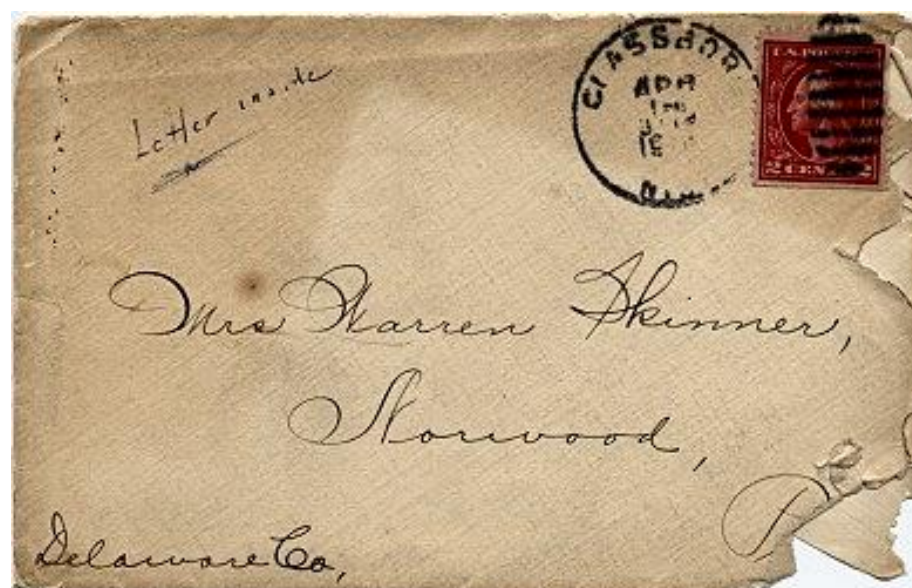 Letter inside
GLASSBOR
APR
U.S. POSTAGE
2 CENTS 2
Mrs Warren Skinner,
Norwood,
Delaware Co,
P